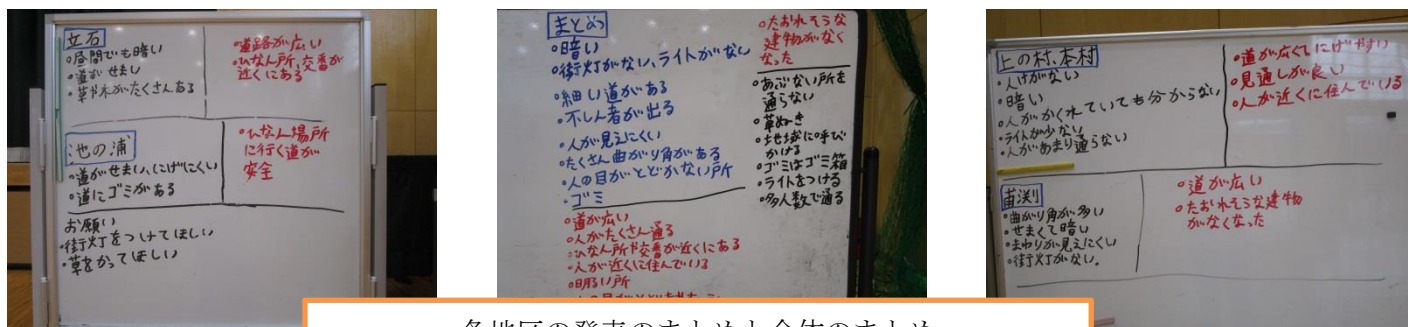 立石
・昼間でも暗い
・道がせまい
・草や木がたくさんある
・道路が広い
・ひなん所、交番が
近くにある
池の浦
・道がせまい、にげにくい
・道にゴミがある
・ひなん場所
に行く道が
安全
お願い
・街灯をつけてほしい
・草をかってほしい
まとめ
・暗い
・街灯がない、ライトがない
・細い道がある
・不しん者が出る
・人が見えにくい
・たくさん曲がり角がある
・人の目がとどかない所
・ゴミ
・道が広い
・人がたくさん通る
・ひなん所や交番が近くにある
・人が近くに住んでいる
・明るい所
・たおれそうな
建物がなく
なった
・あぶない所を
通らない
・草ぬき
・地域に呼び
かける
・ゴミはゴミ箱
・ライトをつける
・多人数で通る
上の村、本村
・人けがない
・暗い
・人がかくれていても分からない
・ライトが少ない
・人があまり通らない
・道が広くてにげやすい
・見通しが良い
・人が近くに住んでいる
・曲がり角が多い
・せまくて暗い
・まわりが見えにくい
・街灯がない。
・道が広い
・たおれそうな建物
がなくなった
各地区の発表のまとめと全体のまとめ